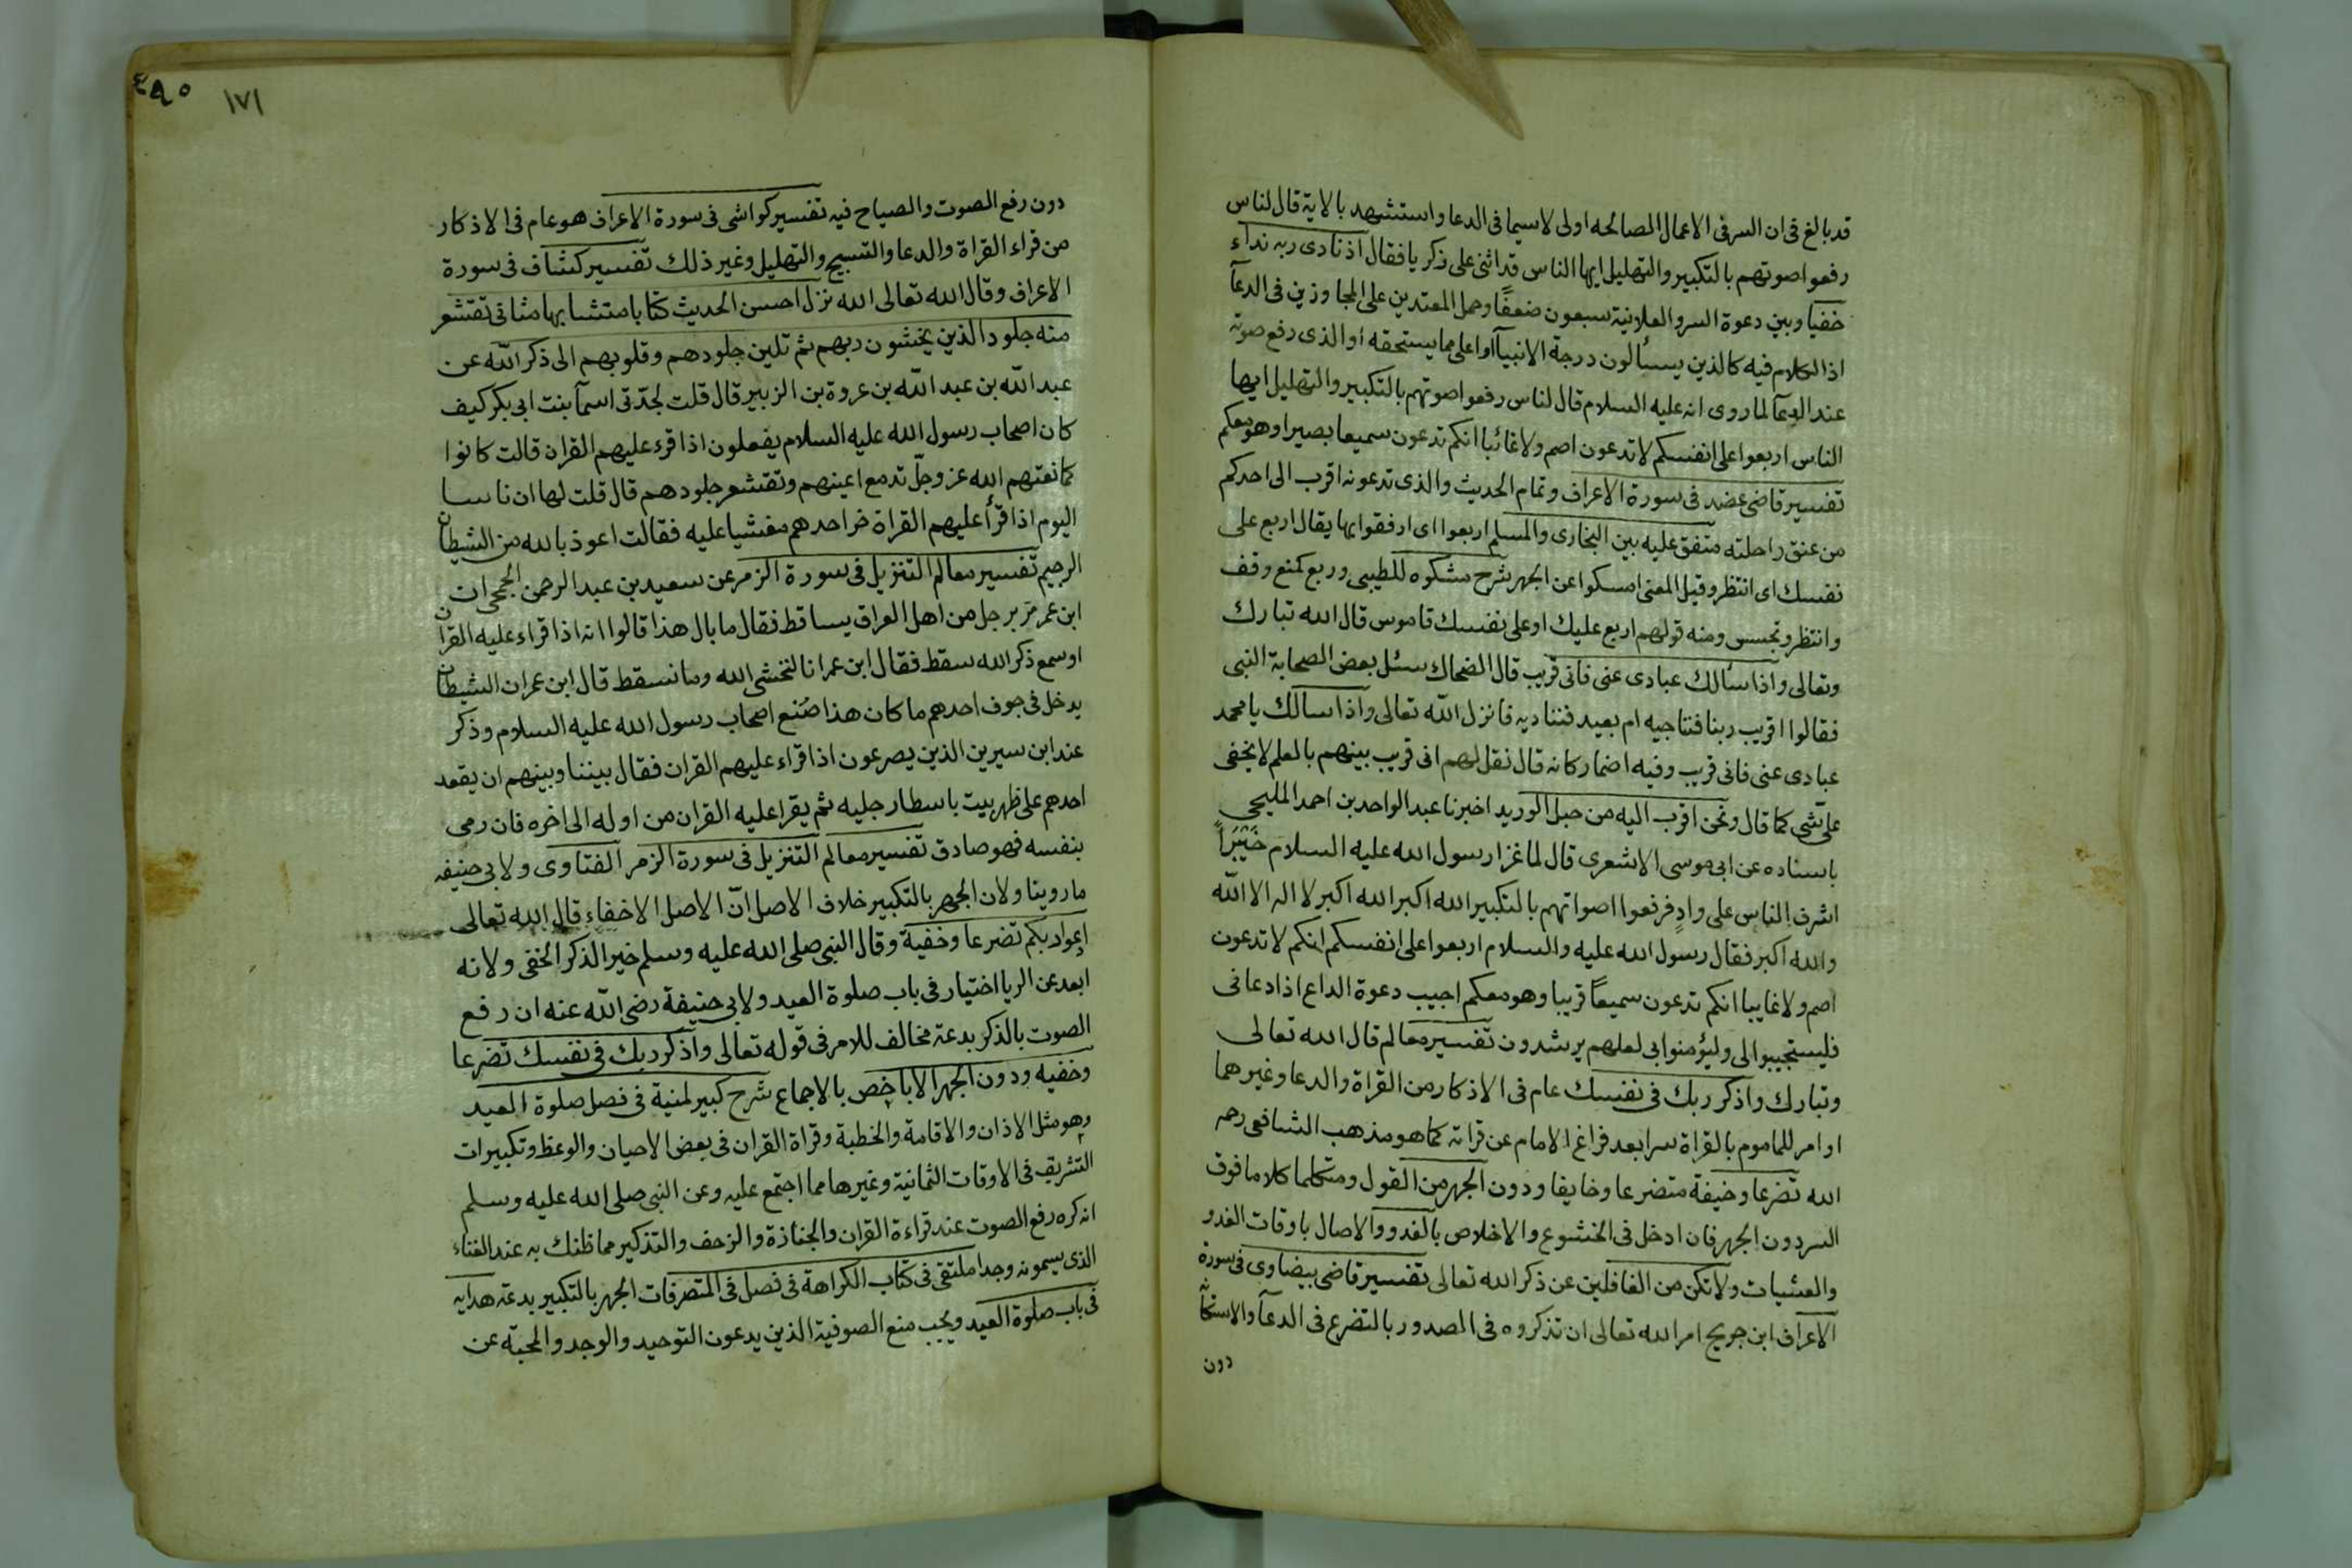 قد بالغ فى ان السر فى الاعمال الصالحه اولى لاسيما فى الدعا واستشهد بالاية قال لناس
رفعوا صوتهم بالتكبير والتهليل ايها الناس قد اثنى على ذكريا فقال اذ نادى ربه نداء
خفيا وبين دعوة السر والعلانية سبعون ضعفًا وحمل المعتدين على المجاوزين فى الدعآ
اذا الكلام فيه كالذين يسألون درجة الانبيآ او اعلى مما يستحقه او الذى رفع صوته
عند الدعآ لما روى انه عليه السلام قال لناس رفعوا صوتهم بالتكبير والتهليل ايها
الناس اربعوا على انفسكم لا تدعون اصم ولا غائبا انكم تدعون سميعا بصيرا وهو معكم
تفسير قاضى عضد فى سورة الاعراف وتمام الحديث والذى تدعونه اقرب الى احدكم
من عنق راحلته متفق عليه بين البخارى والمسلم اربعوا اى ارفقوا بها يقال اربع على
نفسك اى انتظر وقيل المعنى امسكوا عن الجهر شرح مشكوه للطيبى وربع كمنع وقف
وانتظر وتحبس ومنه قولهم اربع عليك او على نفسك قاموس قال الله تبارك
وتعالى واذا سألك عبادى عنى فانى قريب قال الضحاك سئل بعض الصحابة النبى
فقالوا اقريب ربنا فنناجيه ام بعيد فنناديه فانزل الله تعالى واذا سالك يا محمد
عبادى عنى فانى قريب وفيه اضمار كانه قال نقل لهم انى قريب بينهم بالعلم لا يخفى
على شى كما قال ونحن اقرب اليه من حبل الوريد اخبرنا عبد الواحد بن احمد المليحى
باسناده عن ابى موسى الاشعرى قال لما غزا رسول الله عليه السلام خَيْبَرًا
اشرف الناس على وادٍ فرفعوا اصواتهم بالتكبير الله اكبر الله اكبر لا اله الا الله
والله اكبر فقال رسول الله عليه والسلام اربعوا على انفسكم انكم لا تدعون
اصم ولا غايبا انكم تدعون سميعًا قريبا وهو معكم اجيب دعوة الداع اذا دعانى
فليستجيبوا لى وليؤمنوا بى لعلهم يرشدون تفسير معالم قال الله تعالى
وتبارك واذكر ربك فى نفسك عام فى الاذكار من القراة والدعا وغيرهما
او امر للماموم بالقراة سرا بعد فراغ الامام عن قراته كما هو مذهب الشافعى رحمه
الله تضرعا وخيفة متضرعا وخايفا ودون الجهر من القول ومتكلما كلاما فوق
السر دون الجهر فان ادخل فى الخشوع والاخلاص بالغدو والاصال باوقات الغدو
والعشيات ولا تكن من الغافلين عن ذكر الله تعالى تفسير قاضى بيضاوى فى سورة
الاعراف ابن جريج امر الله تعالى ان تذكروه فى الصدور بالتضرع فى الدعآ والاستكانة
دون
١٧١
٤٩٠
دون رفع الصوت والصياح فيه تفسير كواشى فى سورة الاعراف هو عام فى الاذكار
من قراء القراة والدعا والتسبيح والتهليل وغير ذلك تفسير كشاف فى سورة
الاعراف وقال الله تعالى الله نزل احسن الحديث كتابا متشابها مثانى تقشعر
منه جلود الذين يخشون ربهم ثم تلين جلودهم وقلوبهم الى ذكر الله عن
عبد الله بن عبد الله بن عروة بن الزبير قال قلت لجدّتى اسمآ بنت ابى بكر كيف
كان اصحاب رسول الله عليه السلام يفعلون اذا قرء عليهم القران قالت كانوا
كما نعتهم الله عز وجلّ تدمع اعينهم وتقشعر جلودهم قال قلت لها ان ناسا
اليوم اذا قرأ عليهم القراة خر احدهم مغشيا عليه فقالت اعوذ بالله من الشيطان
الرجيم تفسير معالم التنزيل فى سورة الزمر عن سعيد بن عبد الرحمن الجحى ان
ابن عمر مَر برجل من اهل العراق يساقط فقال ما بال هذا قالوا انه اذا قراء عليه القران
او سمع ذكر الله سقط فقال ابن عمر انا لنخشى الله وما نسقط قال ابن عمر ان الشيطان
يدخل فى جوف احدهم ما كان هذا صُنع اصحاب رسول الله عليه السلام وذكر
عند ابن سيرين الذين يصرعون اذا قراء عليهم القران فقال بيننا وبينهم ان يقعد
احدهم على ظهر بيت باسطا رجليه ثم يقرا عليه القران من اوله الى اخره فان رمى
بنفسه فهو صادق تفسير معالم التنزيل فى سورة الزمر الفتاوى ولابى حنيفه
ما روينا ولان الجهر بالتكبير خلاف الاصل انّ الاصل الاخفاء قال الله تعالى
ادعوا ربكم تضرعا وخفية وقال النبى صلى الله عليه وسلم خير الذكر الخفى ولانه
ابعد عن الريا اختيار فى باب صلوة العيد ولابى حنيفة رضى الله عنه ان رفع
الصوت بالذكر بدعة مخالف للامر فى قوله تعالى واذكر ربك فى نفسك تضرعا
وخفيه ودون الجهر الا ما خص بالاجماع شرح كبير لمنية فى فصل صلوة العيد
وهو مثل الاذان والاقامة والخطبة وقراة القران فى بعض الاحيان والوعظ وتكبيرات
التشريق فى الاوقات الثمانية وغيرها مما اجتمع عليه وعن النبى صلى الله عليه وسلم
انه كره رفع الصوت عند قراءة القران والجنازة والزحف والتذكير مما ظنك به عند الغناء
الذى يسمونه وجدا ملتقى فى كتاب الكراهة فى فصل فى المتفرقات الجهر بالتكبير بدعة هدايه
فى باب صلوة العيد ويجب منع الصوفية الذين يدعون التوحيد والوجد والمحبة عن